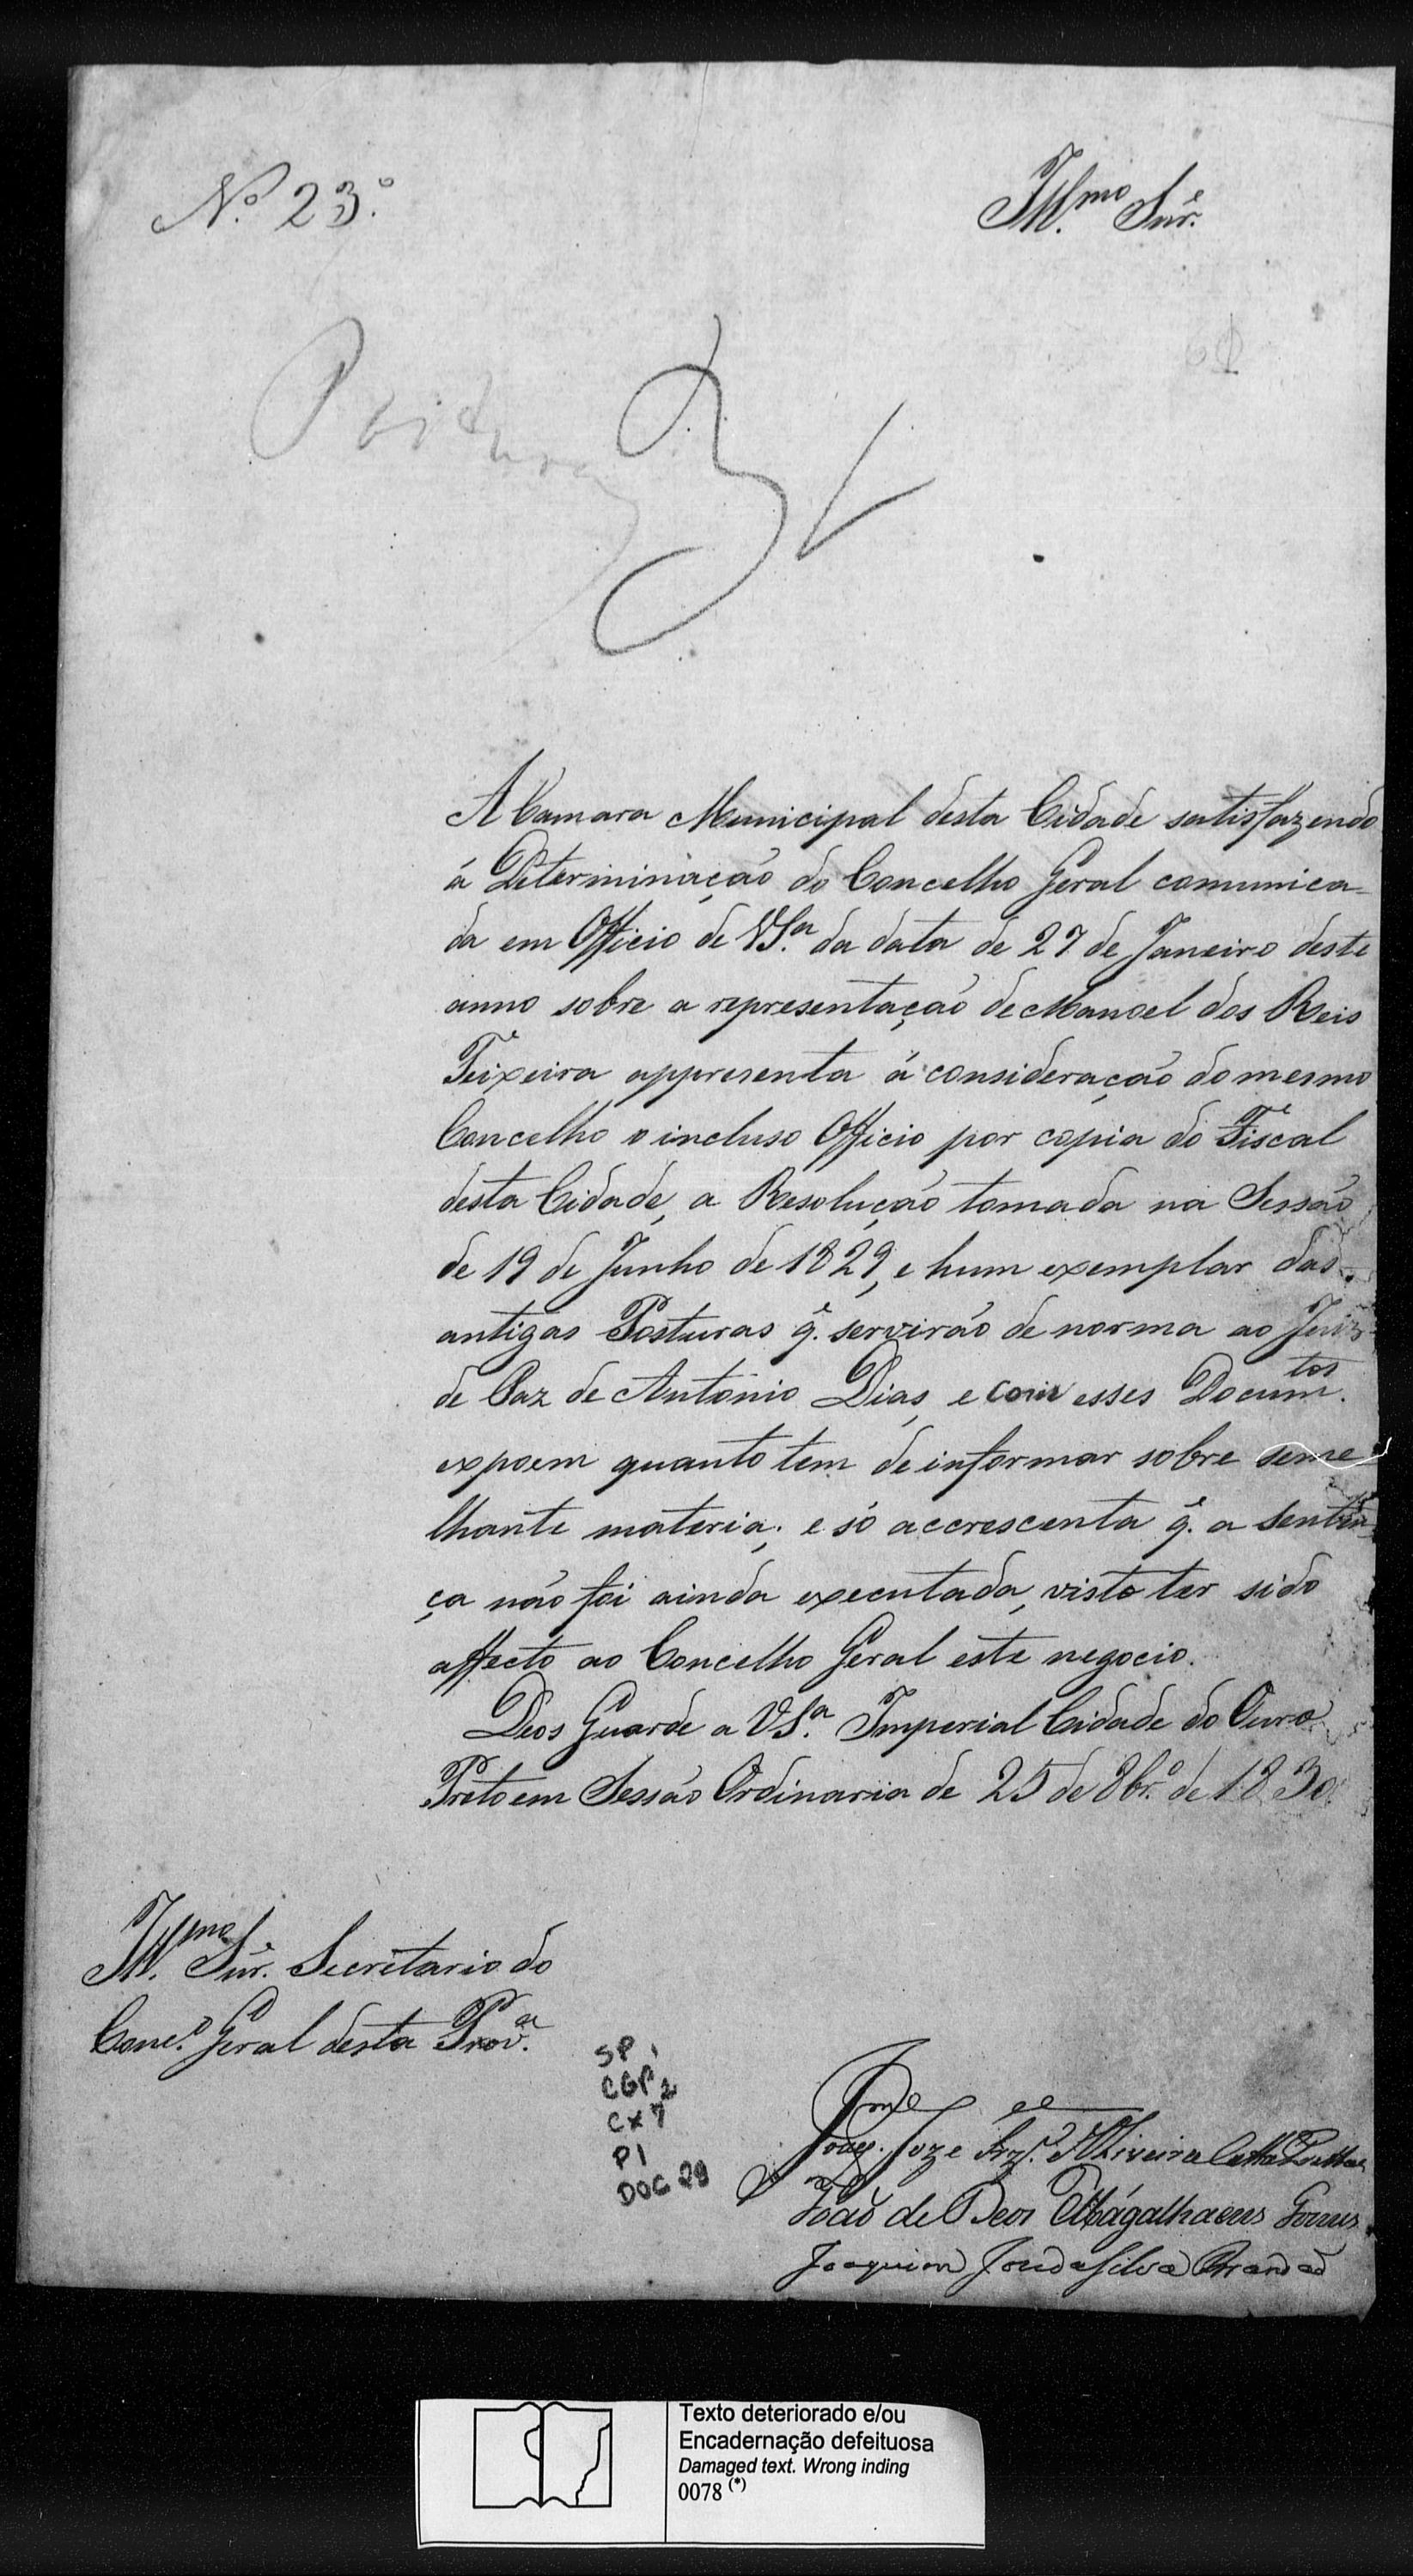 N.º 23.º
Ill.mo Snr.
Posturas
A Camara Municipal desta Cidade satisfazendo
á Determinação do Concelho Geral comunica-
da em Officio de VS.ª da data de 27 de Janeiro deste
anno sobre a representação de Manoel dos Reis
Teixeira appresenta á consideração do mesmo
Concelho o incluso Officio por copia do Fiscal
desta Cidade, a Resolução tomada na Sessão
de 19 de Junho de 1829, e hum exemplar das
antigas Posturas q̃. servirão de norma ao Juiz
de Paz de Antonio Dias, e com esses Docum.tos
expoem quanto tem de informar sobre seme
lhante materia; e só accrescenta q̃. a senten
ça não foi ainda executada, visto ter sido
affecto ao Concelho Geral este negocio.
Deos Guarde a VS.ª Imperial Cidade do Ouro
Preto em Sessão Ordinaria de 25 de 8br.º de 1830.
Ill.mo Snr. Secretario do
Conc.º Geral desta Prov.ª
SP 1
CGP 2
CX 7
P1
DOC 29
João de Deos Magalhaens Gomes
Joaquim José da Silva Brandão
Texto deteriorado e/ou
Encadernação defeituosa
Damaged text. Wrong inding
0078 (*)